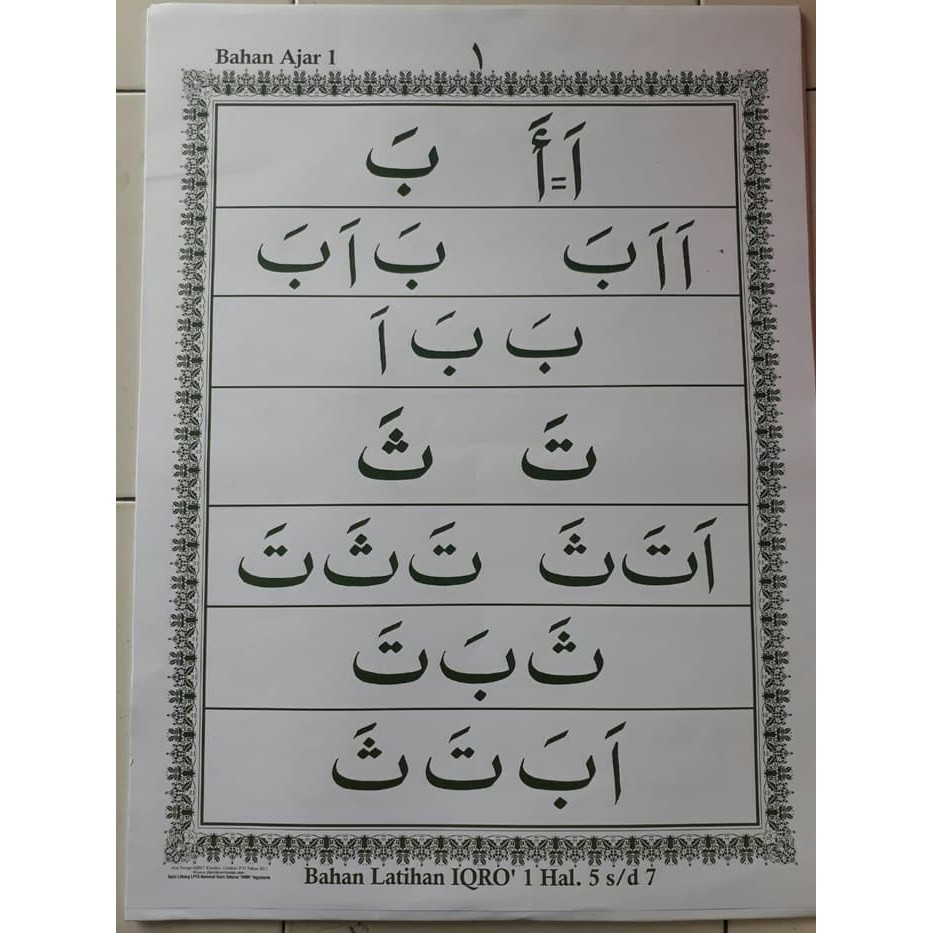 Bahan Ajar 1
١
اَ = أَ بَ
اَ اَ بَ بَ اَ بَ
بَ بَ اَ
تَ ثَ
اَ تَ ثَ تَ ثَ تَ
ثَ بَ تَ
اَ بَ تَ ثَ
Bahan Latihan IQRO' 1 Hal. 5 s/d 7